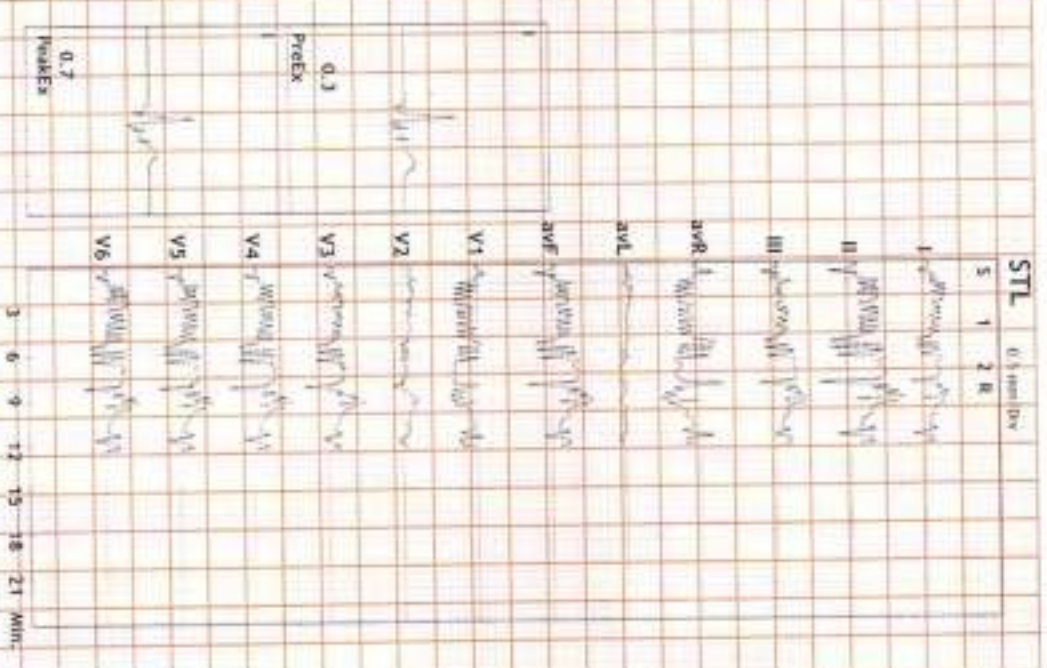 STL 0.5 mm/Div
S 1 2 R
I
II
III
avR
avL
avF
V1
V2
V3
V4
V5
V6
3 6 9 12 15 18 21 Min.
0.3
PreEx
0.7
PeakEx